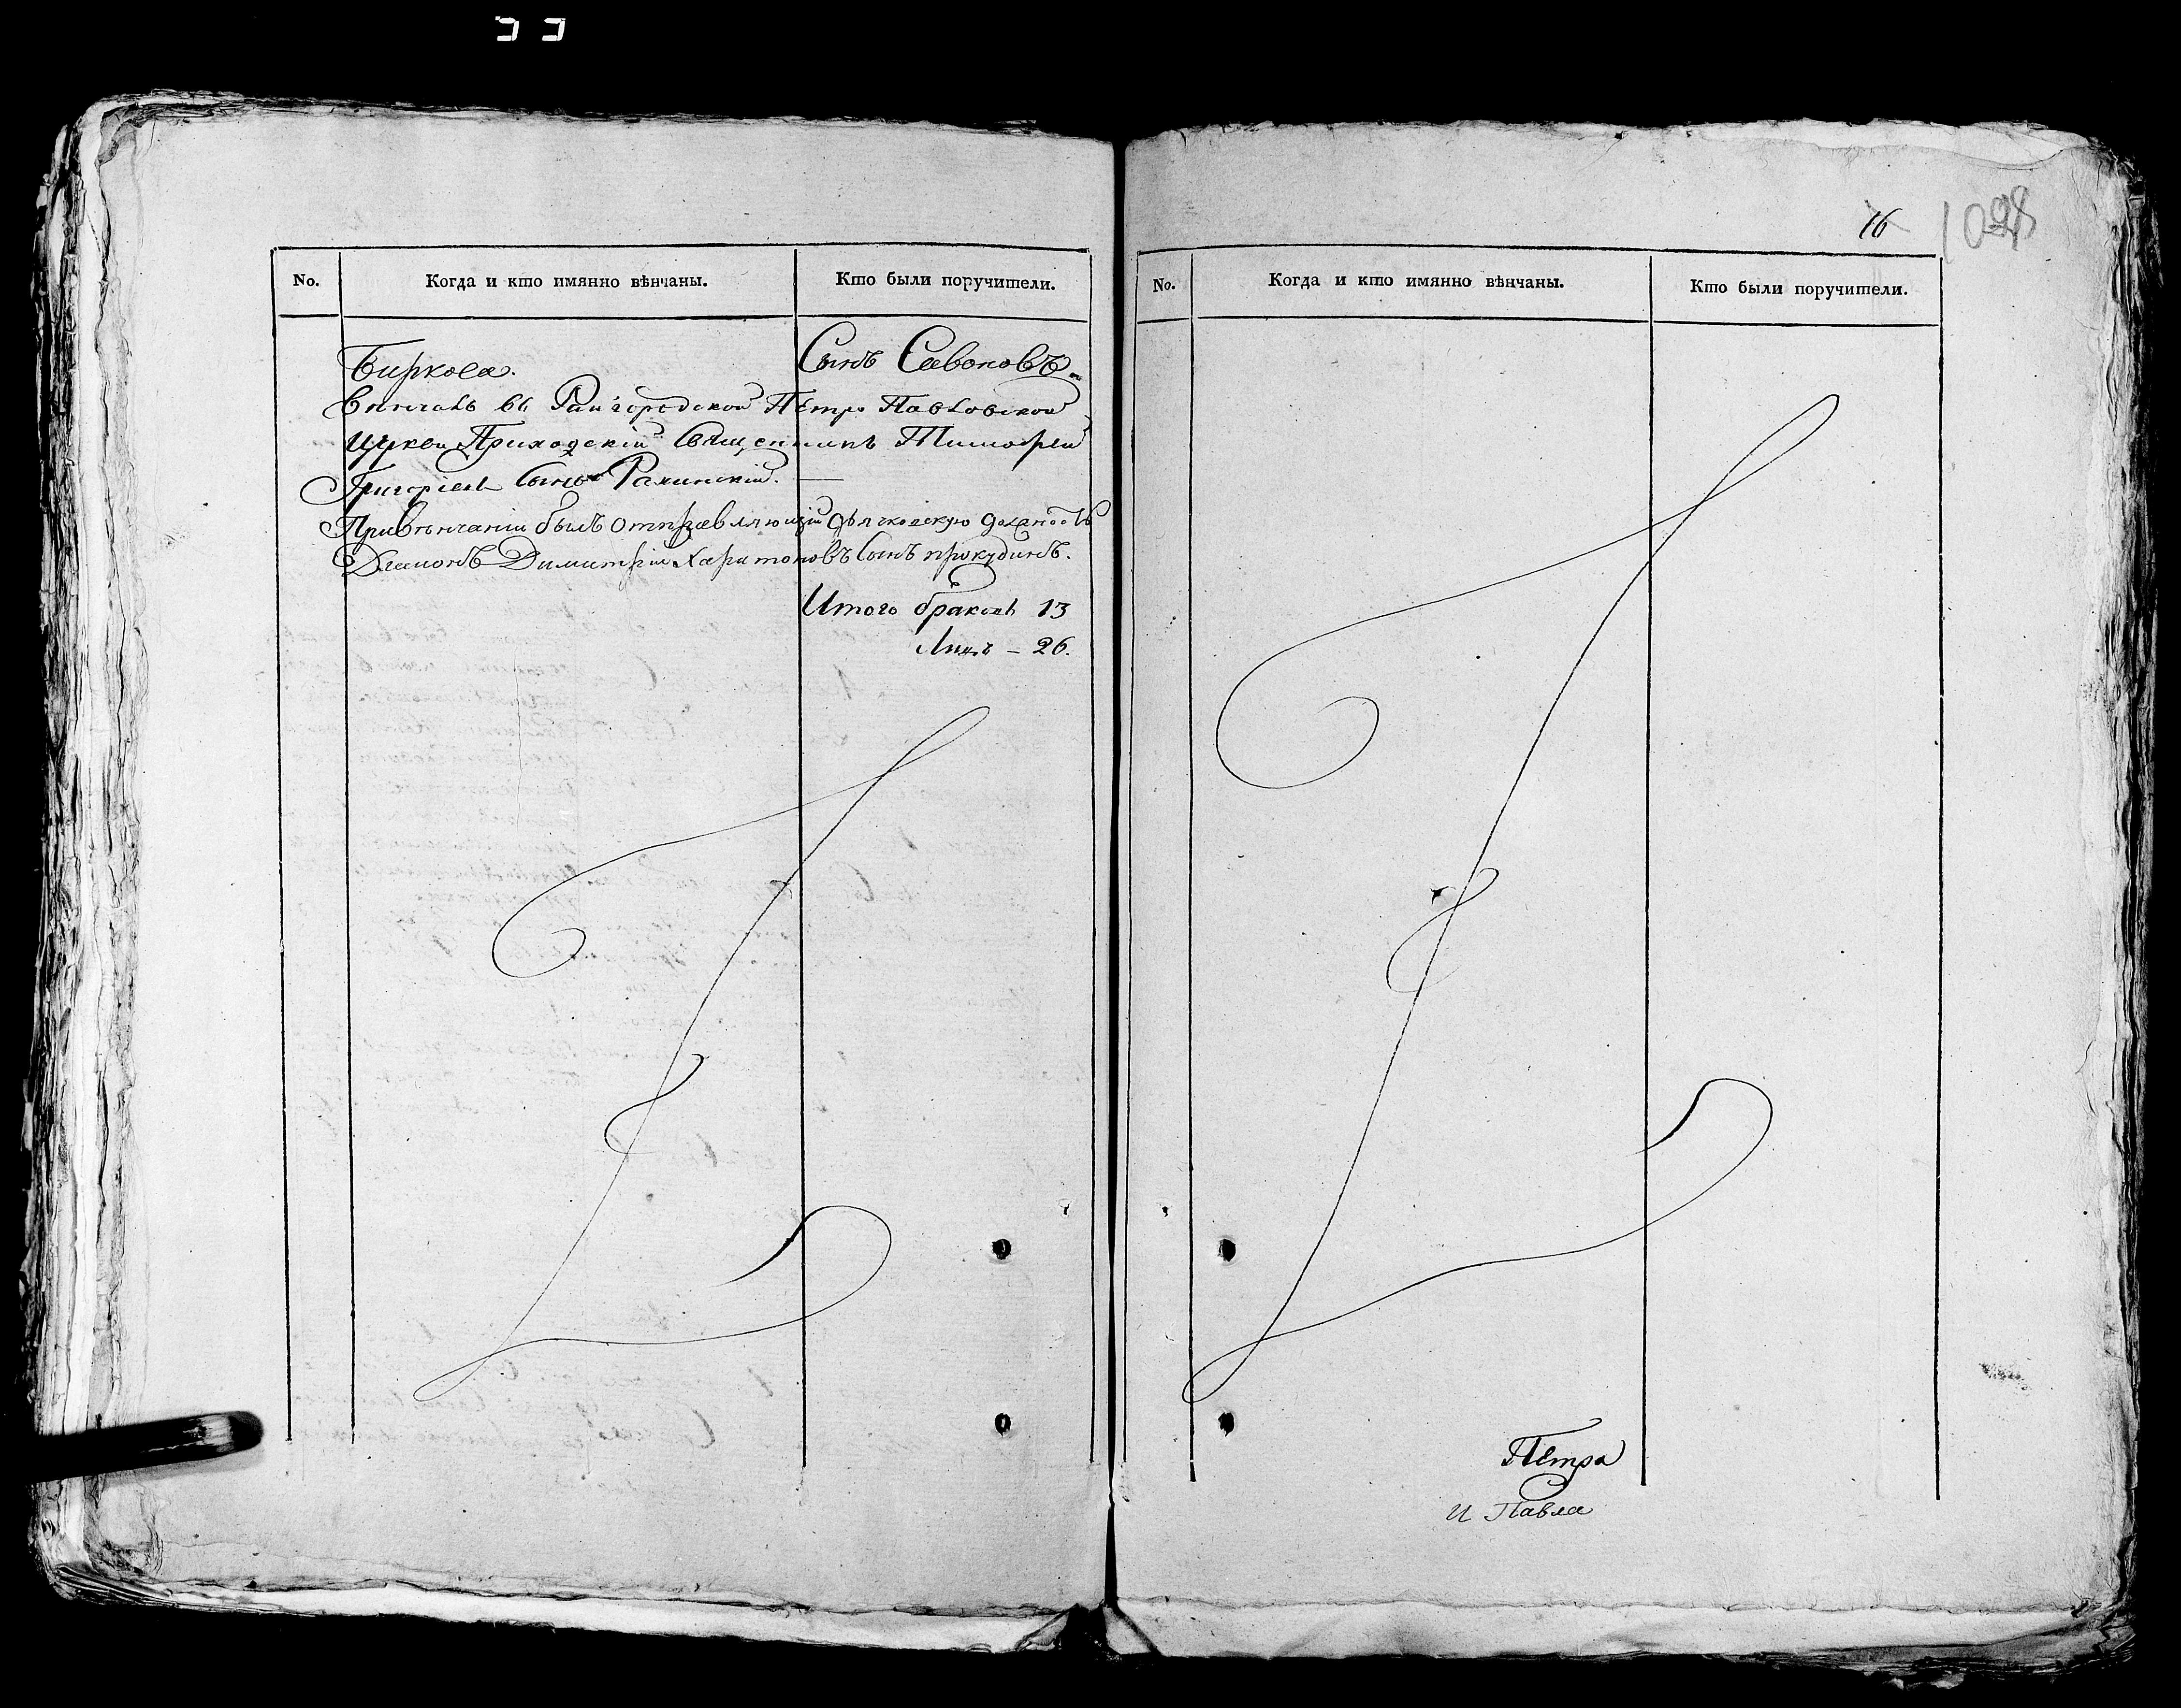 No. Когда и кто имянно вѣнчаны. Кто были поручители.
Биркова. Сынъ Савоновъ
Венчалъ въ Райгородской Петро Павловской
церкви Приходскій Священникъ Тимофей
Григоріевъ Сынъ Рахинскій.
При венчаніи былъ отправляющій дьячковскую должность
Диаконъ Димитрій Харитоновъ Сынъ прокудинъ.
Итого браковъ 13
Лицъ – 26.
16
1028
No. Когда и кто имянно вѣнчаны. Кто были поручители.
Петра
и Павла